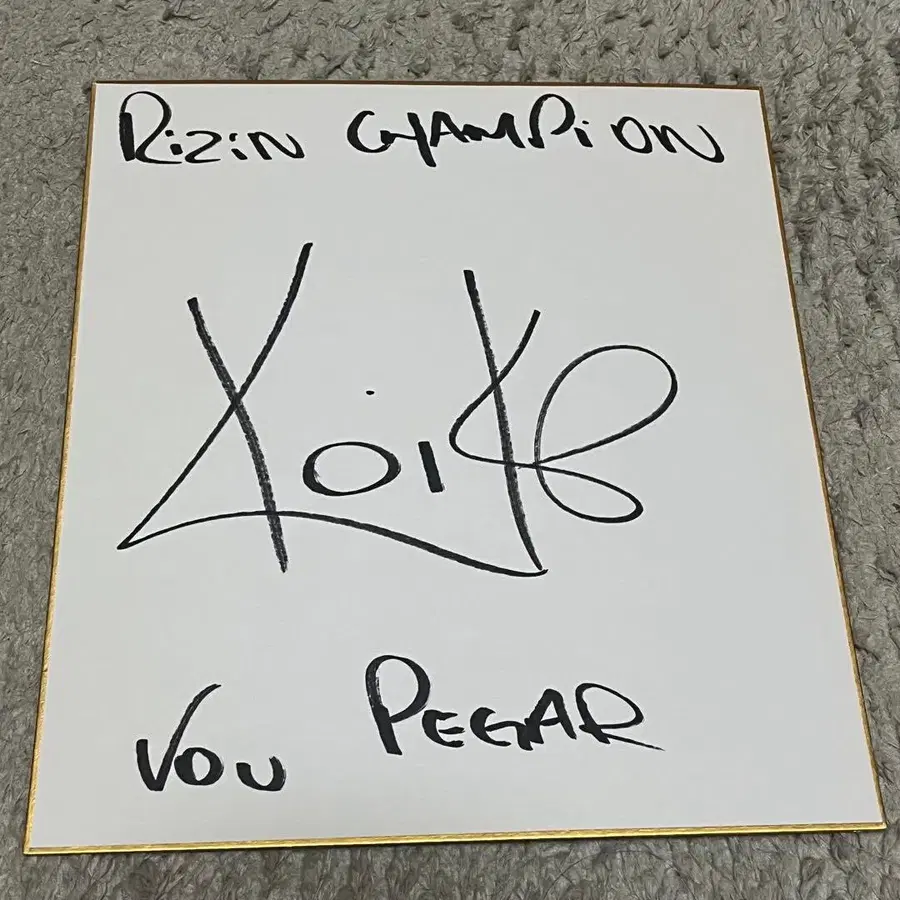 Rizin CHAMPiON
KOiKe
VOU PEGAR